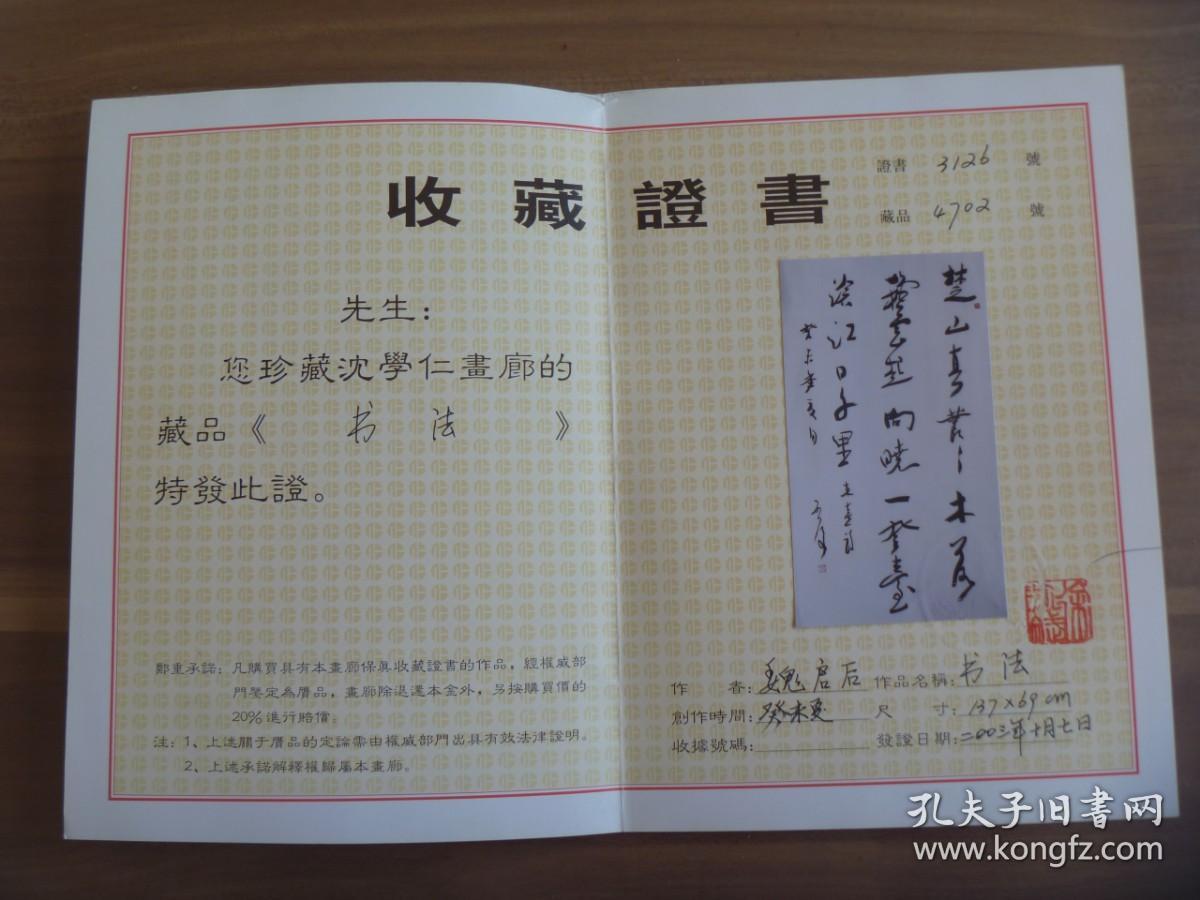 收藏證書
證書 3126 號
藏品 4702 號
先生：
您珍藏沈學仁畫廊的
藏品《 书法 》
特發此證。
楚山青 木落
雲起向曉一登臺
江日千里
鄭重承諾：凡購買具有本畫廊保真收藏證書的作品，經權威部
門鑒定為贋品，畫廊除退還本金外，另按購買價的
20%進行賠償。
注：1、上述關于贋品的定論需由權威部門出具有效法律證明。
2、上述承諾解釋權歸屬本畫廊。
作 者：魏启后 作品名稱：书法
創作時間：癸未夏 尺 寸：137×69cm
收據號碼： 發證日期：二00三年十月七日
孔夫子旧書网
www.kongfz.com